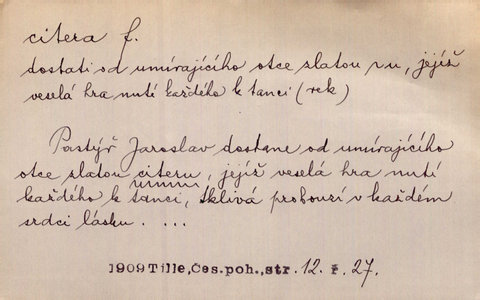 citera f.
dostati od umírajícího otce zlatou ru, jejíž
veselá hra nutí každého k tanci (rek)
Pastýř Jaroslav dostane od umírajícího
otce zlatou citeru, jejíž veselá hra nutí
každého k tanci, tklivá probouzí v každém
srdci lásku. ...
1909 Tille, Čes.poh., str. 12. ř. 27.